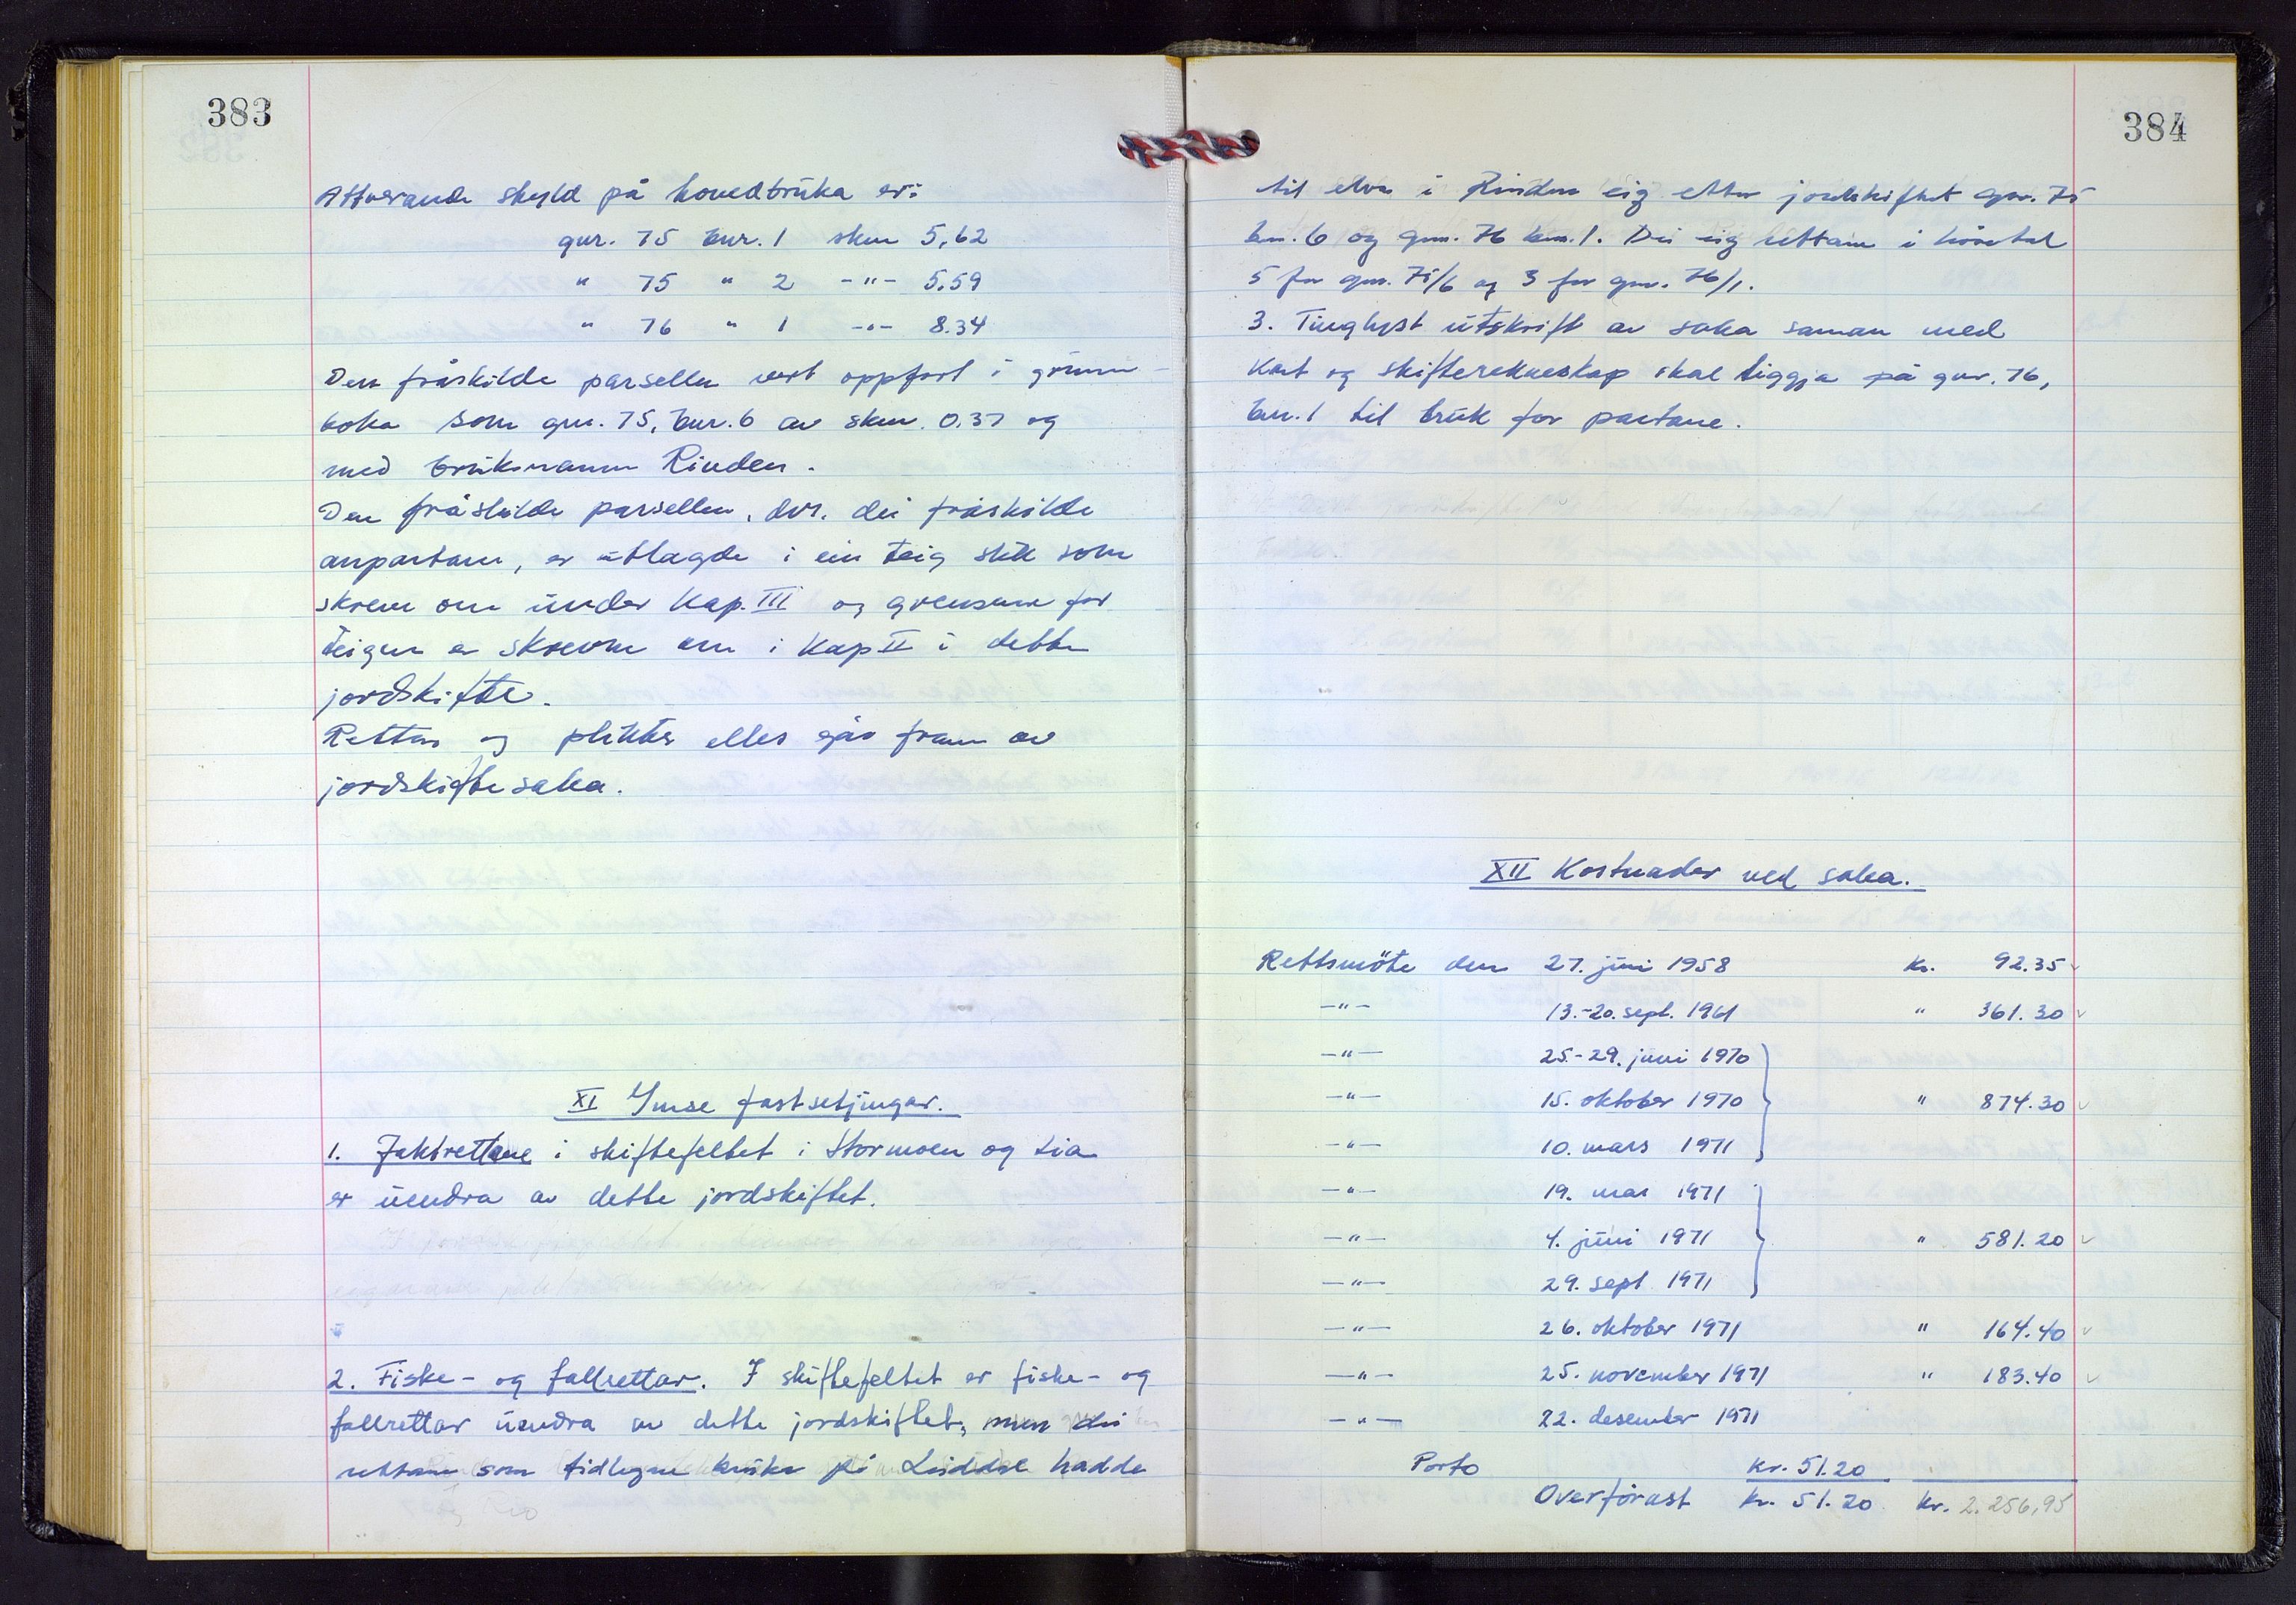 383
Attverande skyld på hovedbruka er:
gnr. 75 bnr. 1 skm 5,62
" 75 " 2 -"- 5,59
" 76 " 1 -"- 8.34
Den fråskilde parsellen vert oppført i grunn-
boka som gnr. 75, bnr. 6 av skm. 0.37 og
med bruksnamn Rinden.
Den fråskilde parsellen, dvs. dei fråskilde
anpartane, er utlagde i ein teig slik som
skrevne om under Kap. III og grensene for
teigen er skrevne om i Kap II i dette
jordskifte.
Rettar og plikter elles går fram av
jordskiftesaka.
XI Ymse fastsetjingar.
1. Jaktrettane i skiftefeltet i Stormoen og Lia
er uendra av dette jordskiftet.
2. Fiske- og fallrettar. I skiftefeltet er fiske- og
fallrettar uendra av dette jordskiftet, men dei
rettane som tidlegare bruka på Liddal hadde
384
til elva i Rinden eig etter jordskiftet gnr. 75
bnr. 6 og gnr. 76 bnr. 1. Dei eig rettane i høvetal
5 for gnr. 75/6 og 3 for gnr. 76/1.
3. Tinglyst utskrift av saka saman med
kart og skifterekneskap skal liggja på gnr. 76,
bnr. 1 til bruk for partane.
XII Kostnader ved saka.
Rettsmöte den 27. juni 1958 Kr. 92.35
-"- 13.-20. sept. 1961 " 361.30
-"- 25.-29. juni 1970
-"- 15. oktober 1970 " 874.30
-"- 10. mars 1971
-"- 19. mai 1971
-"- 4. juni 1971 " 581.20
-"- 29. sept 1971
-"- 26. oktober 1971 " 164.40
-"- 25. november 1971 " 183.40
-"- 22. desember 1971
Porto kr. 51.20
Overførast kr. 51.20 kr. 2.256,95